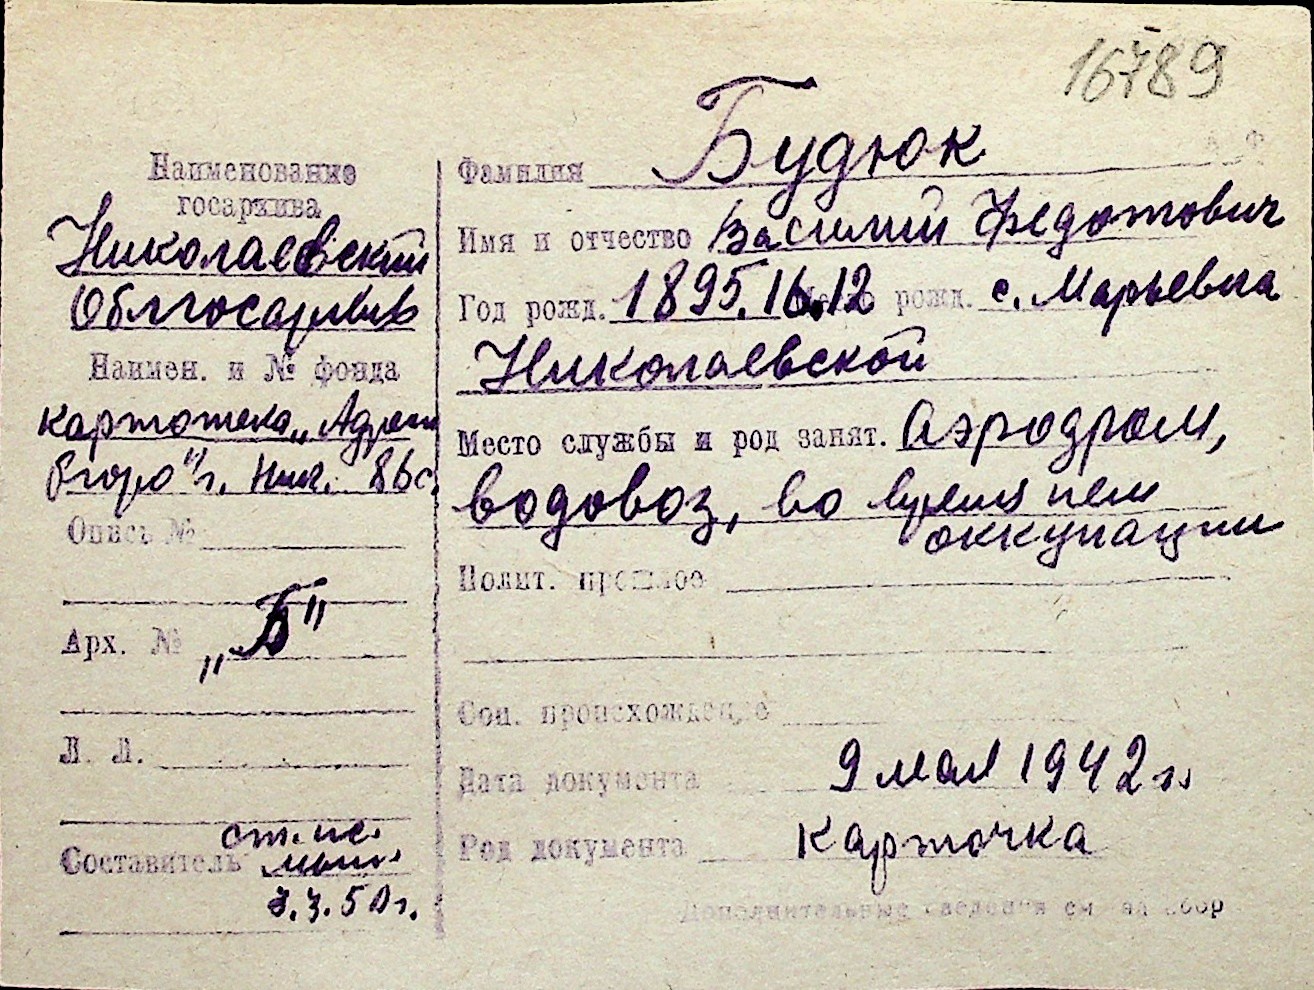 16789
Наименование
госархива
Николаевский
Облгосархив
Наимен. и № фонда
картотека „Адресн
бюро" г. Ник. 86с.
Опись №
Арх. № „Б"
Л. Л.
ст. нс.
Составитель
3.3.50г.
Фамилия Будюк
Имя и отчество Василий Федотович
Год рожд. 1895.16.12 Место рожд. с. Марьевка
Николаевской
Место службы и род занят. Аэродром,
водовоз, во время нем
оккупации
Полит. прошлое
Соц. происхождение
Дата документа 9 мая 1942 г.
Род документа карточка
Дополнительные сведения см на обор